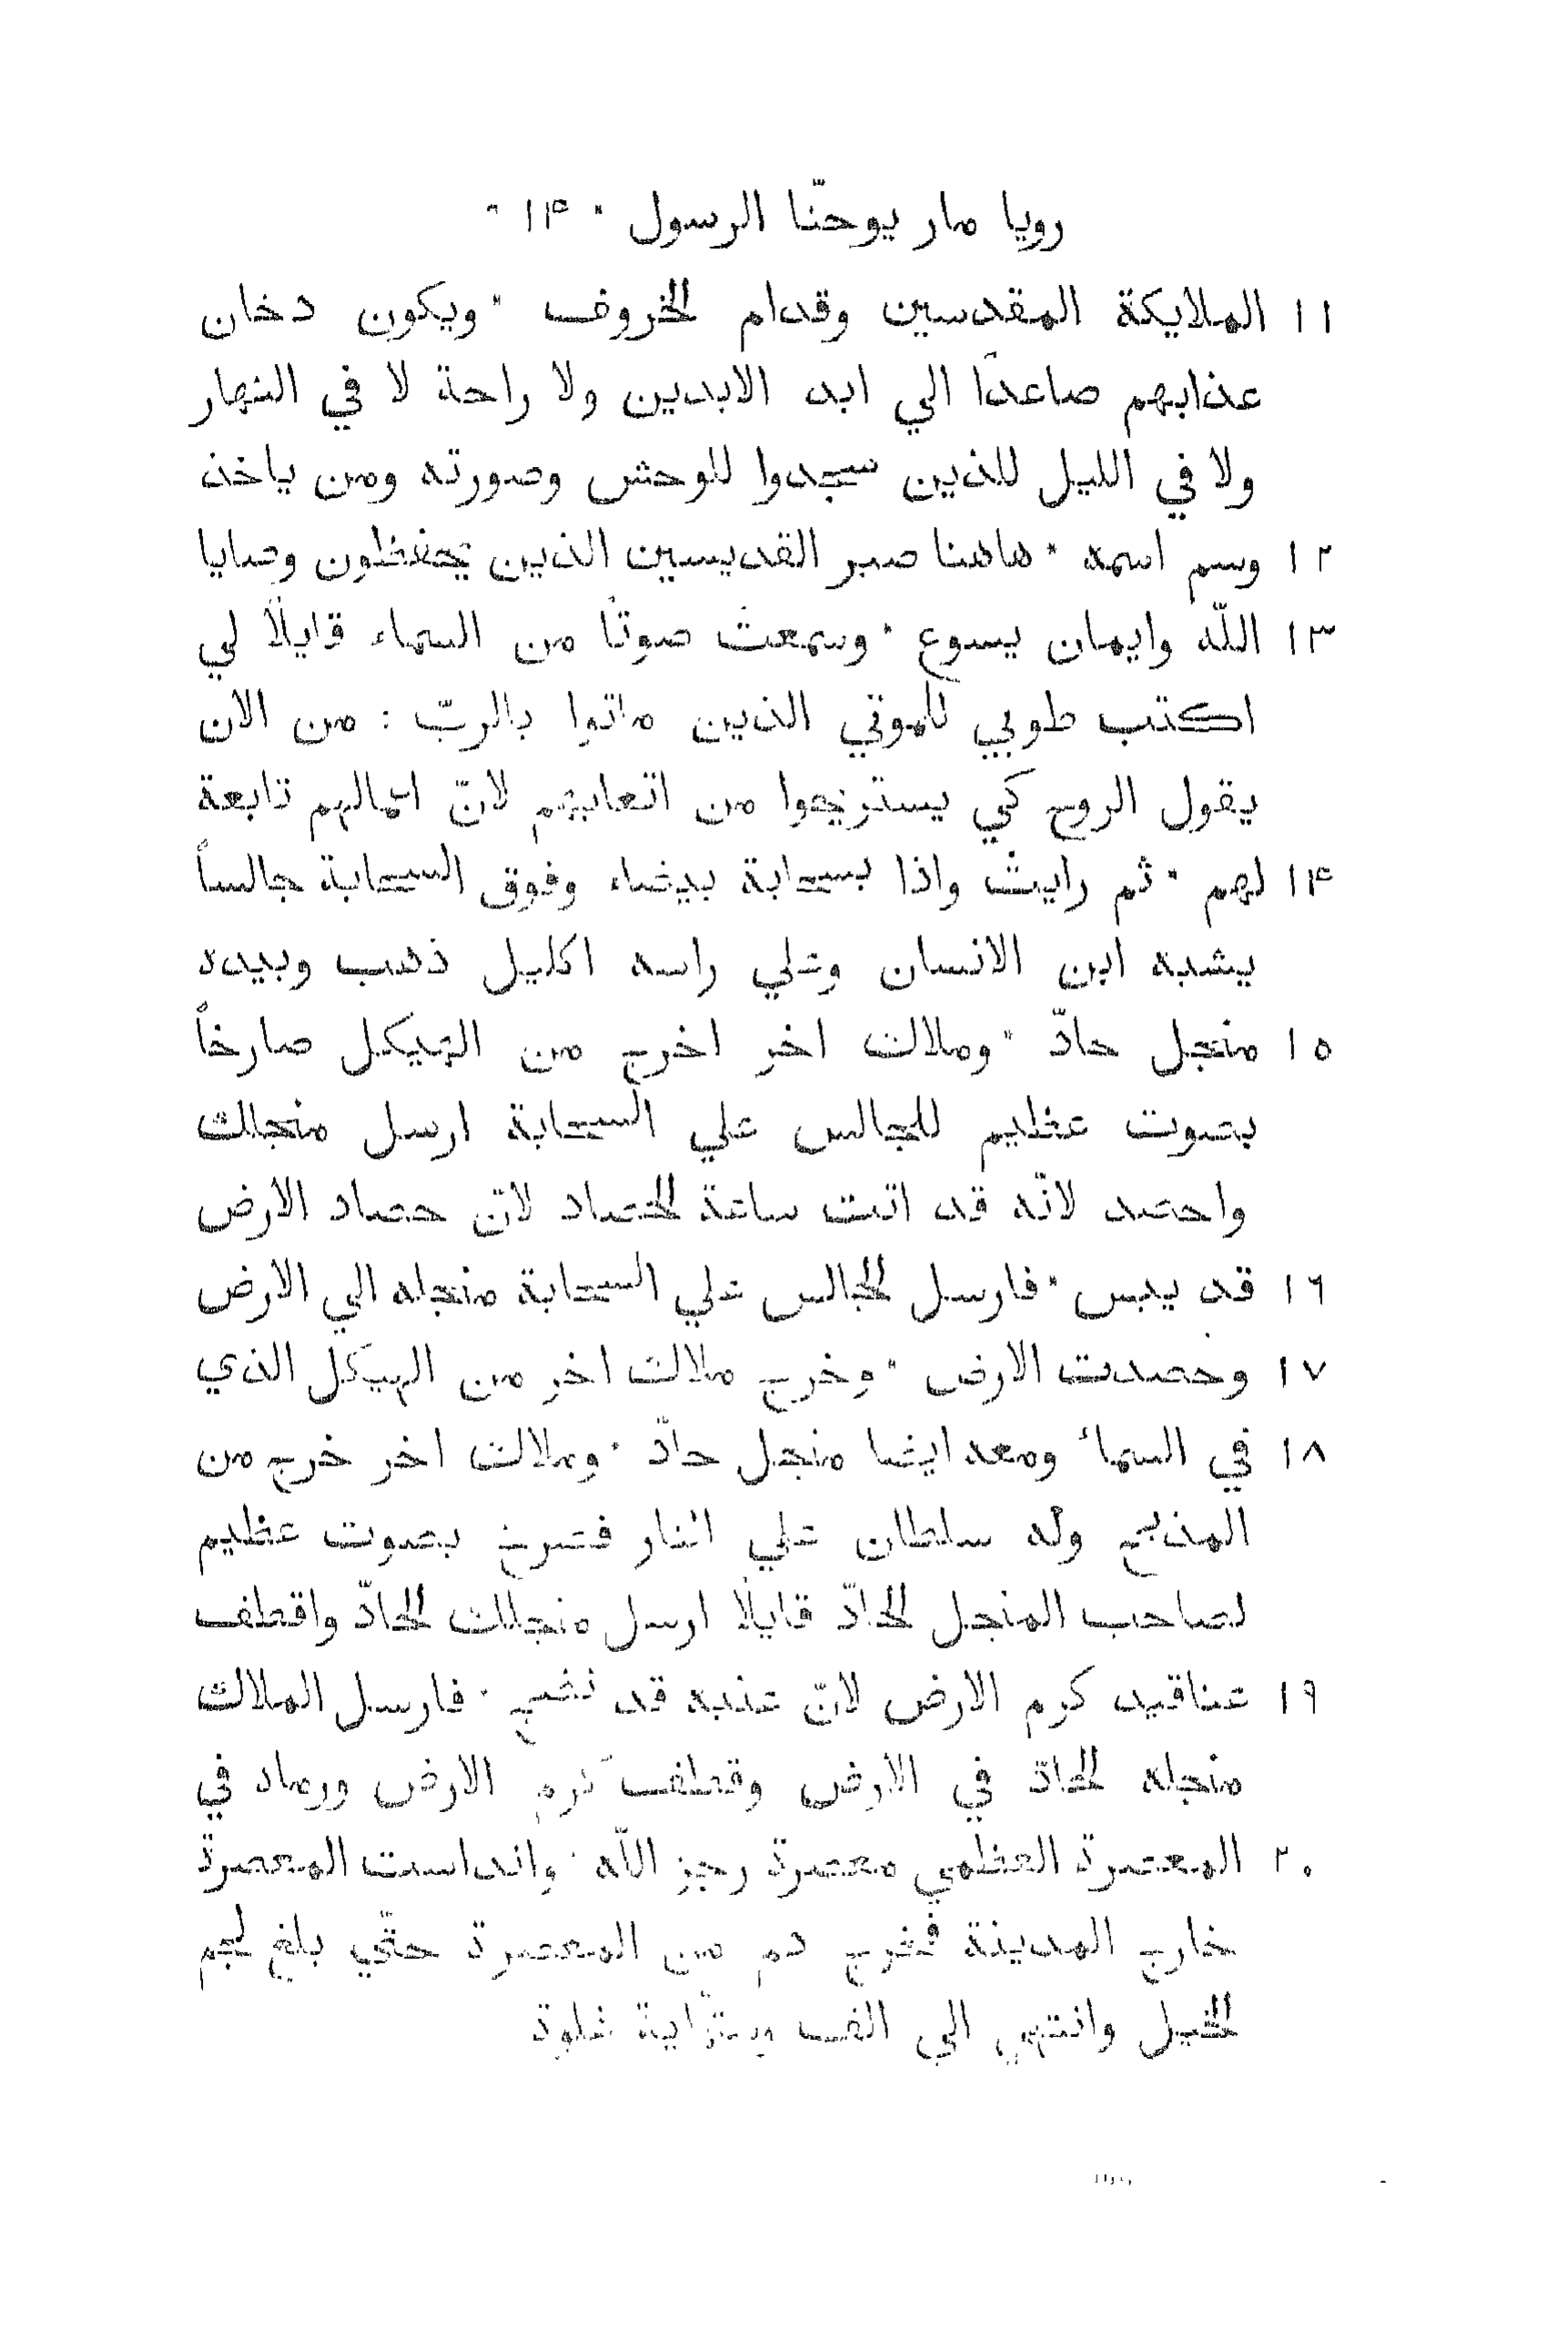 رويا مار يوحنّا الرسول ٠ ١۴ ٠
١١ الملايكة المقدسين وقدام الخروف ٠ ويكون دخان
عذابهم صاعدًا الي ابد الابدين ولا راحة لا في النهار
ولا في الليل للذين سجدوا للوحش وصورته ومن ياخذ
١٢ وسم اسمه ٠ هاهنا صبر القديسين الذين يحفظون وصايا
١٣ اللّه وايمان يسوع ٠ وسمعت صوتًا من السماء قايلًا لي
اكتب طوبي للموتي الذين ماتوا بالربّ : من الان
يقول الروح كي يستريحوا من اتعابهم لانّ اعمالهم تابعة
١۴ لهم ٠ ثم رايت واذا بسحابة بيضاء وفوق السحابة جالساً
يشبه ابن الانسان وعلي راسه اكليل ذهب وبيده
١٥ منجل حادّ ٠ وملاك اخر اخرج من الهيكل صارخاً
بصوت عظيم للجالس علي السحابة ارسل منجلك
واحصد لانّه قد اتت ساعة الحصاد لانّ حصاد الارض
١٦ قد يبس ٠ فارسل الجالس علي السحابة منجله الي الارض
١٧ وحصدت الارض ٠ وخرج ملاك اخر من الهيكل الذي
١٨ في السماء ومعه ايضا منجل حادّ ٠ وملاك اخر خرج من
المذبح وله سلطان علي النار فصرخ بصوت عظيم
لصاحب المنجل الحادّ قايلًا ارسل منجلك الحادّ واقطف
١٩ عناقيد كرم الارض لانّ عنبه قد نضج ٠ فارسل الملاك
منجله الحادّ في الارض وقطف كرم الارض ورماد في
٢٠ المعصرة العظمي معصرة رجز اللّه ٠ وانداست المعصرة
خارج المدينة فخرج دم من المعصرة حتّي بلغ لجم
الخيل وانتهي الي الف وستماية غلوة